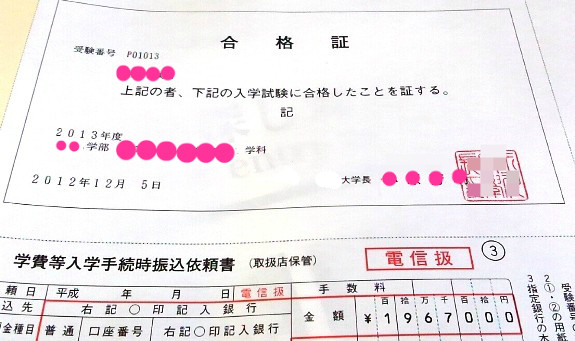 合格証
受験番号 P01013
上記の者、下記の入学試験に合格したことを証する。
記
2013年度
学部 学科
2012年12月 5日
大学長
学費等入学手続時振込依頼書 (取扱店保管) 電信扱 ③
頼日 平成 年 月 日 電信扱 手数料
込先 右記○印記入銀行 金額 百拾万千百拾円
¥1967000
金種目 普通 口座番号 右記○印記入銀行
受験番号の
2①・②の用紙
3指定銀行の本